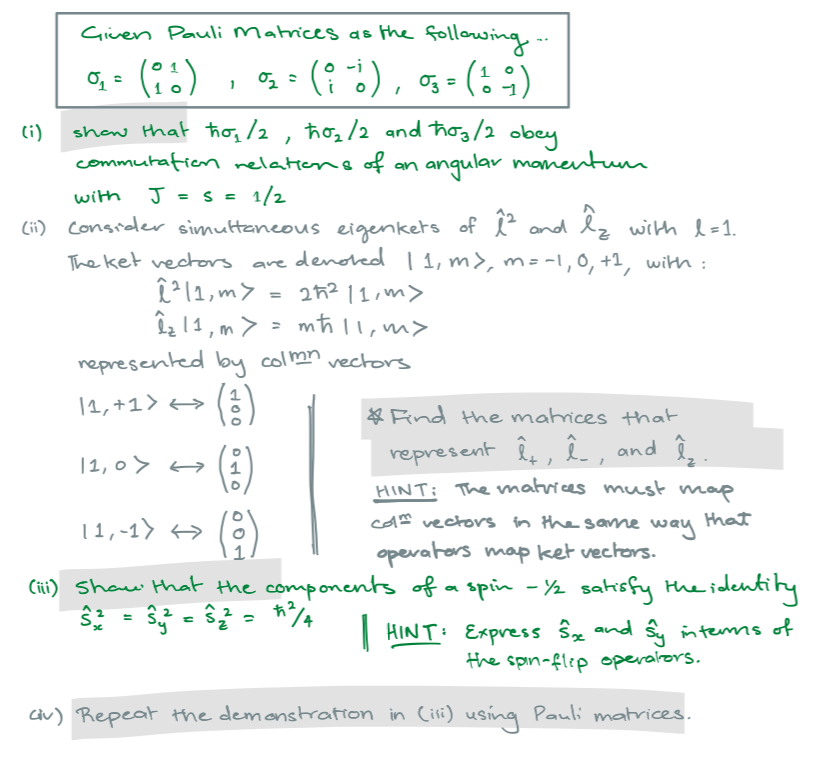 Given Pauli Matrices as the following...
σ₁ = (0 1; 1 0) , σ₂ = (0 -i; i 0) , σ₃ = (1 0; 0 -1)
(i) show that ħσ₁/2 , ħσ₂/2 and ħσ₃/2 obey
commutation relations of an angular momentum
with J = s = 1/2
(ii) Consider simultaneous eigenkets of l̂² and l̂_z with l=1.
The ket vectors are denoted |1,m>, m=-1,0,+1, with :
l̂²|1,m> = 2ħ²|1,m>
l̂_z|1,m> = mħ|1,m>
represented by colmn vectors
|1,+1> ↔ (1; 0; 0)
|1,0> ↔ (0; 1; 0)
|1,-1> ↔ (0; 0; 1)
* Find the matrices that
represent l̂₊, l̂₋, and l̂_z.
HINT: The matrices must map
colmn vectors in the same way that
operators map ket vectors.
(iii) Show that the components of a spin -½ satisfy the identity
ŝ_x² = ŝ_y² = ŝ_z² = ħ²/4
HINT: Express ŝ_x and ŝ_y in terms of
the spin-flip operators.
(iv) Repeat the demonstration in (iii) using Pauli matrices.